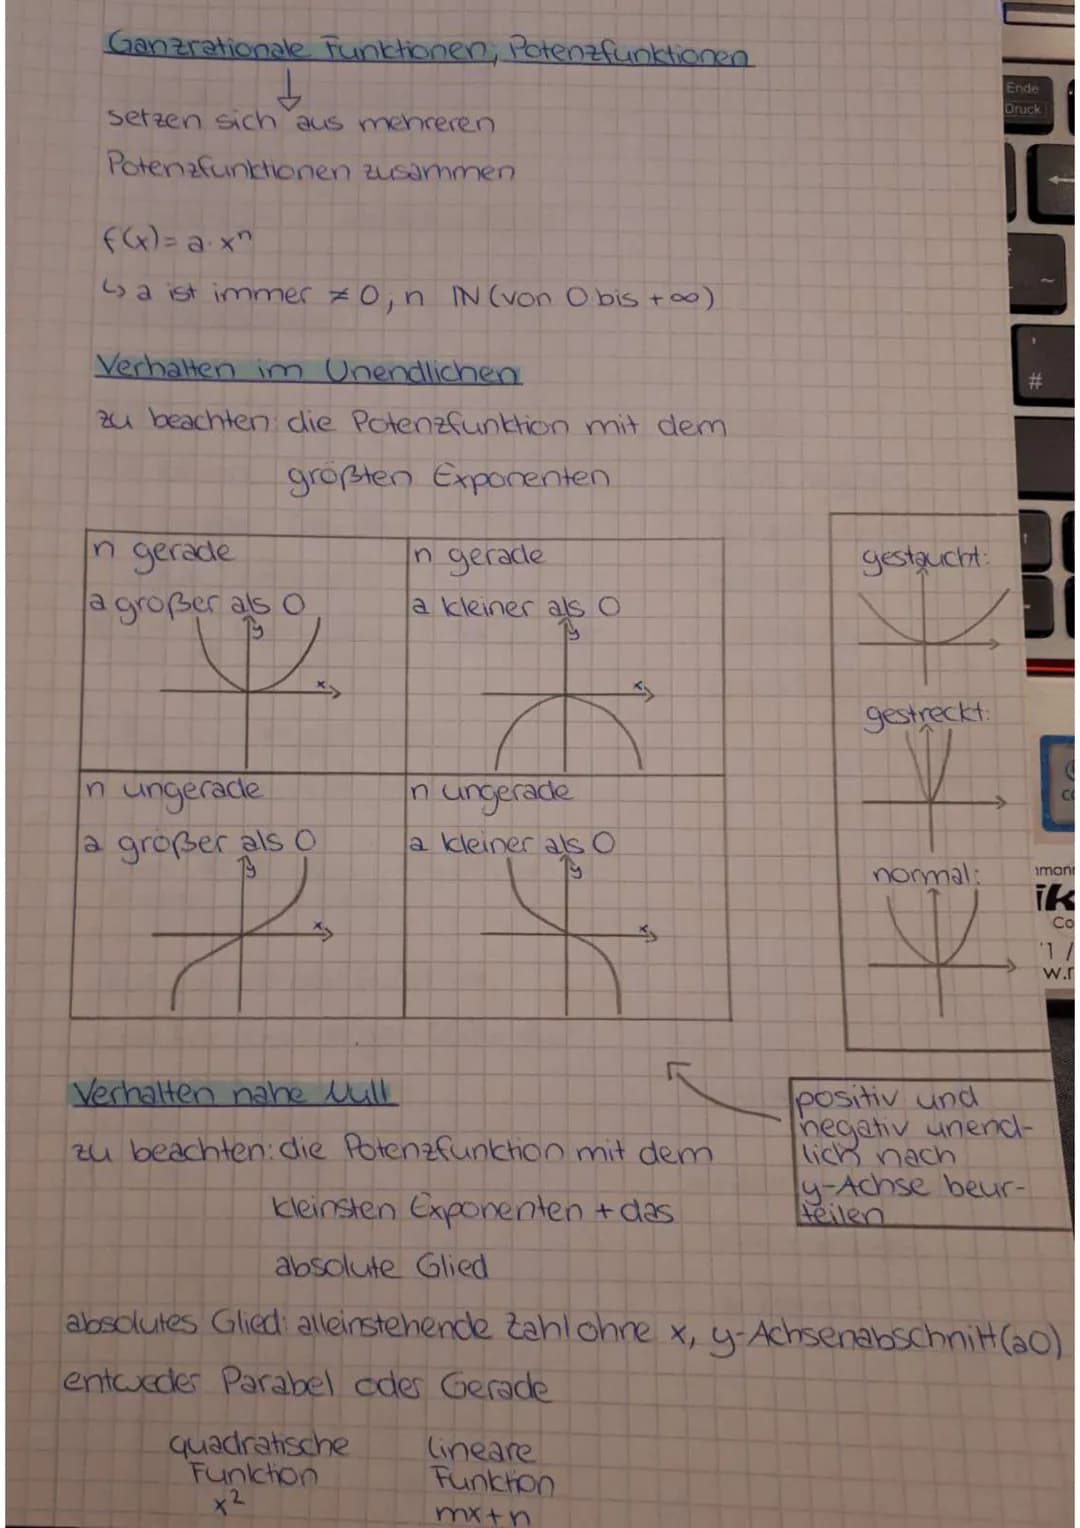 Ganzrationale Funktionen, Potenzfunktionen
setzen sich aus mehreren
Potenzfunktionen zusammen
f(x)= a·xⁿ
↳ a ist immer ≠0, n ℕ (von 0 bis +∞)
Verhalten im Unendlichen
zu beachten: die Potenzfunktion mit dem
größten Exponenten
n gerade
a großer als 0
y
x
n gerade
a kleiner als 0
y
x
n ungerade
a größer als 0
y
x
n ungerade
a kleiner als 0
y
x
gestaucht:
gestreckt:
normal:
positiv und
negativ unend-
lich nach
y-Achse beur-
teilen
Verhalten nahe Null
zu beachten: die Potenzfunktion mit dem
kleinsten Exponenten + das
absolute Glied
absolutes Glied: alleinstehende Zahl ohne x, y-Achsenabschnitt (a0)
entweder Parabel oder Gerade
quadratische
Funktion
x²
lineare
Funktion
mx+n
Ende
Druck
#
ik
Co
w.r